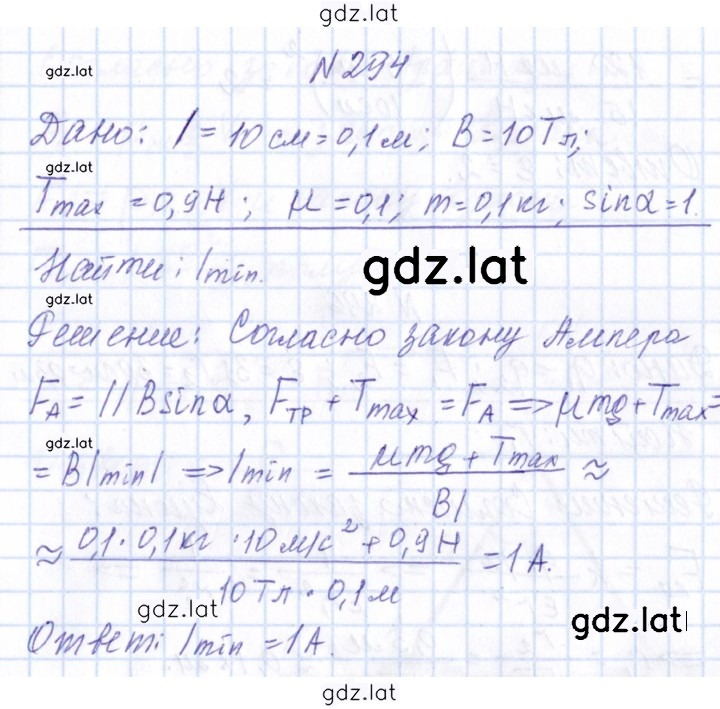 gdz.lat
N 294
gdz.lat
Дано: l = 10 см = 0,1 м; B = 10 Тл;
gdz.lat
Tmax = 0,9 Н; μ = 0,1; m = 0,1 кг; sinα = 1.
Найти: Imin.
gdz.lat
gdz.lat
Решение: Согласно закону Ампера
FA = IlBsinα, Fтр + Tmax = FA => μmg + Tmax =
gdz.lat
= BIminl => Imin = (μmg + Tmax)/(Bl) ≈
≈ (0,1 · 0,1 кг · 10 м/с² + 0,9 Н)/(10 Тл · 0,1 м) = 1 А.
gdz.lat
gdz.lat
Ответ: Imin = 1 А.
gdz.lat